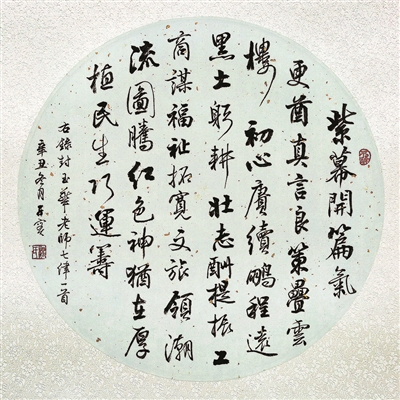 紫幕開篇氣
更酋真言良策疊雲
樓初心賡續鵬程遠
黑土躬耕壯志酬提振工
商謀福祉拓寬文旅領潮
流圖騰紅色神猶在厚
植民生巧運籌
右錄封玉華老師七律一首
辛丑冬月